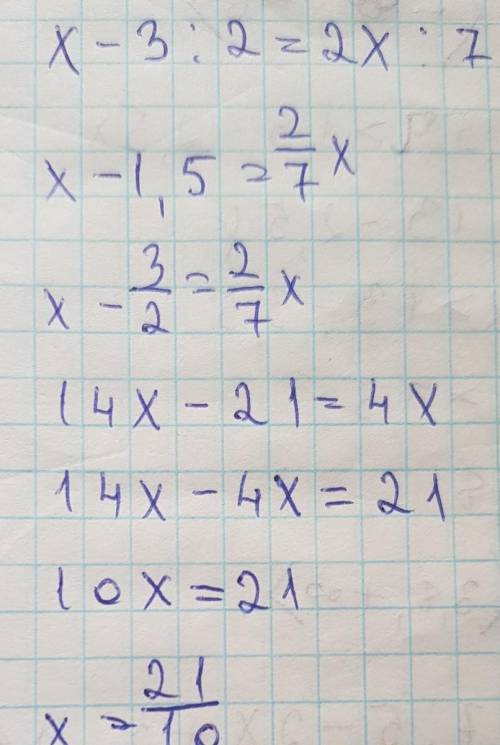 x - 3 : 2 = 2x : 7
x - 1,5 = 2/7 x
x - 3/2 = 2/7 x
14x - 21 = 4x
14x - 4x = 21
10x = 21
x = 21/10